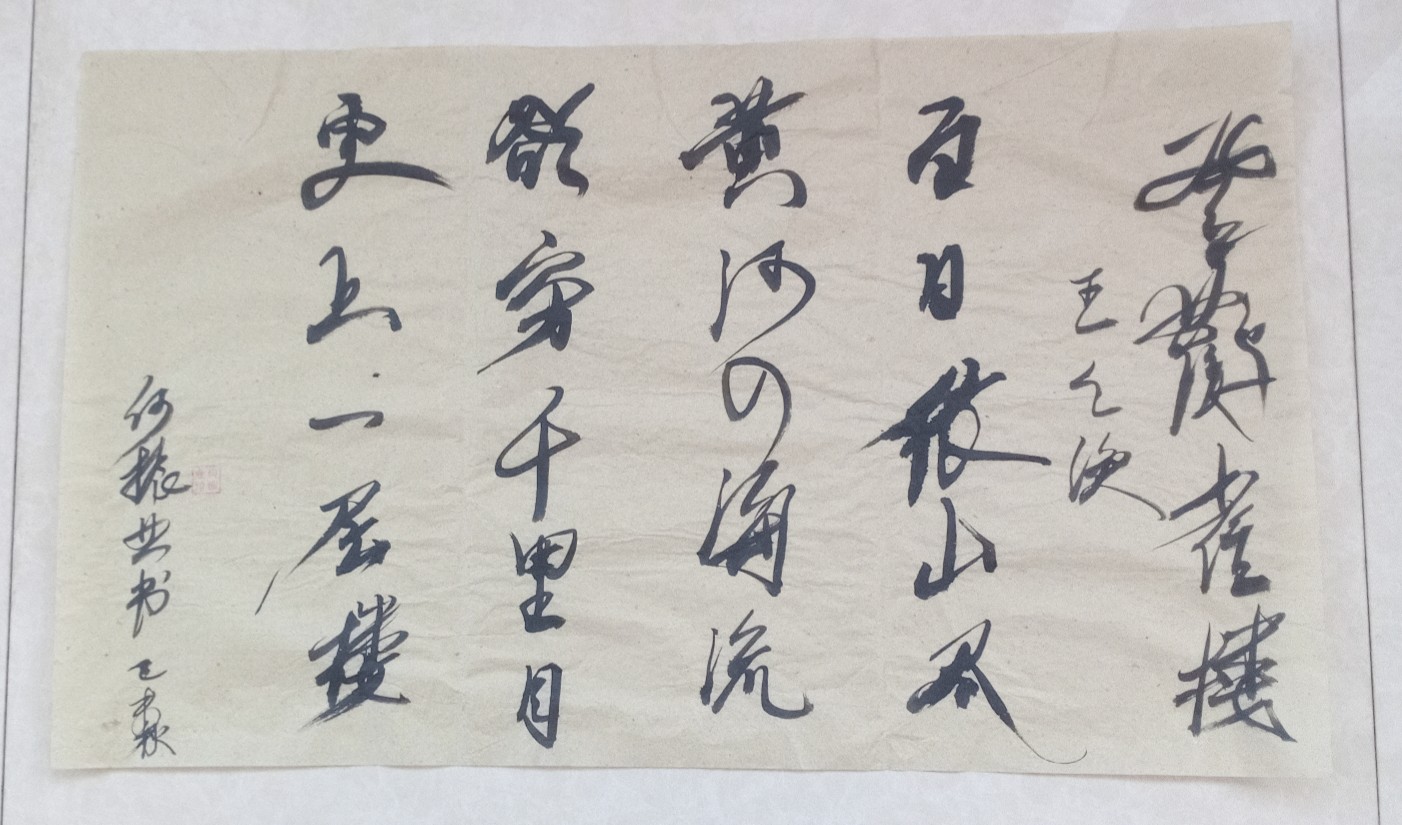 登鹳雀楼
王之涣
白日依山尽
黄河入海流
欲穷千里目
更上一层楼
何振业书 乙未秋